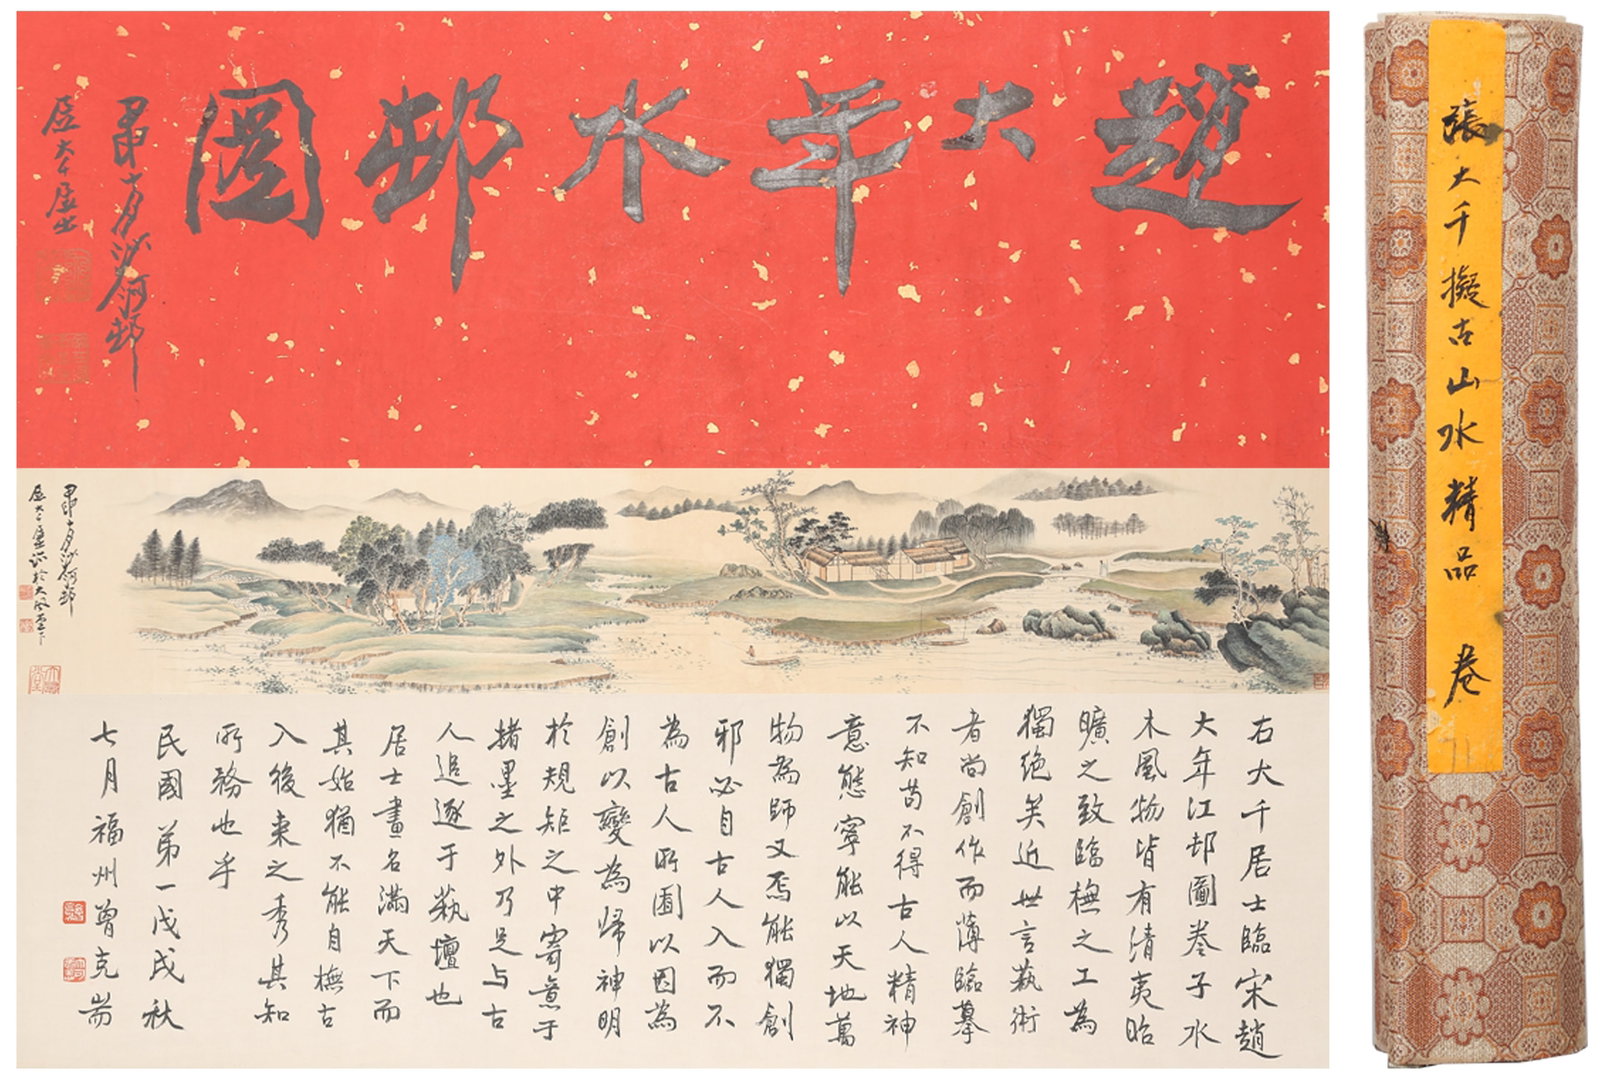 趙大年水邨圖
甲申十一月沙河邨
居大千居士
甲申十一月沙河邨
居大千居士識於大風堂下
大風堂
右大千居士臨宋趙
大年江邨圖卷子水
木風物皆有清夷昭
曠之致臨橅之工為
獨絕矣近世言藝術
者尚創作而薄臨摹
不知苟不得古人精神
意態寧能以天地萬
物為師又焉能獨創
邪必自古人入而不
為古人所囿以因為
創以變為歸神明
於規矩之中寄意于
楮墨之外乃足与古
人追逐于藝壇也
居士畫名滿天下而
其始猶不能自橅古
入後來之秀其知
所務也乎
民國第一戊戌秋
七月福州曾克耑
張大千擬古山水精品 卷